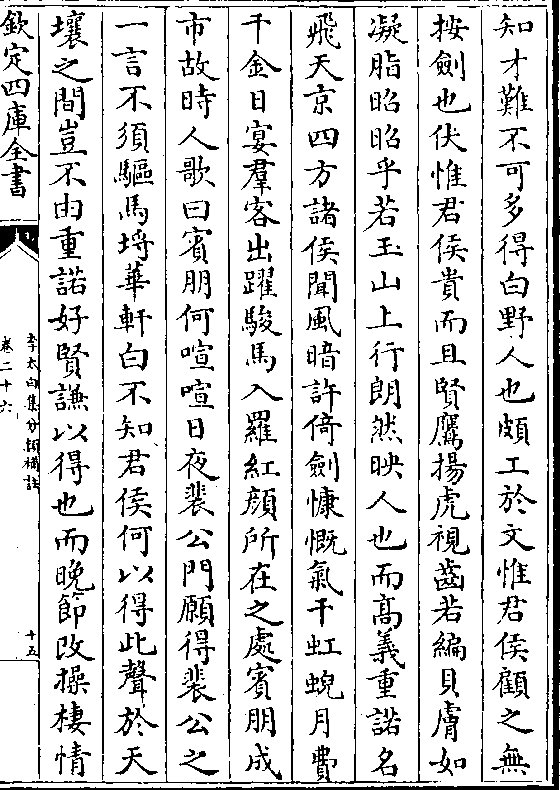 知才難不可多得白野人也頗工於文惟君侯顧之無
按劍也伏惟君侯貴而且賢鷹揚虎視齒若編貝膚如
凝脂昭昭乎若玉山上行朗然映人也而高義重諾名
飛天京四方諸侯聞風暗許倚劍慷慨氣干虹蜺月費
千金日宴羣客出躍駿馬入羅紅顏所在之處賓朋成
市故時人歌曰賓朋何喧喧日夜裴公門願得裴公之
一言不須驅馬埓華軒白不知君侯何以得此聲於天
壤之間豈不由重諾好賢謙以得也而晚節改操棲情
欽定四庫全書
李太白集分類補註
卷二十六
十五